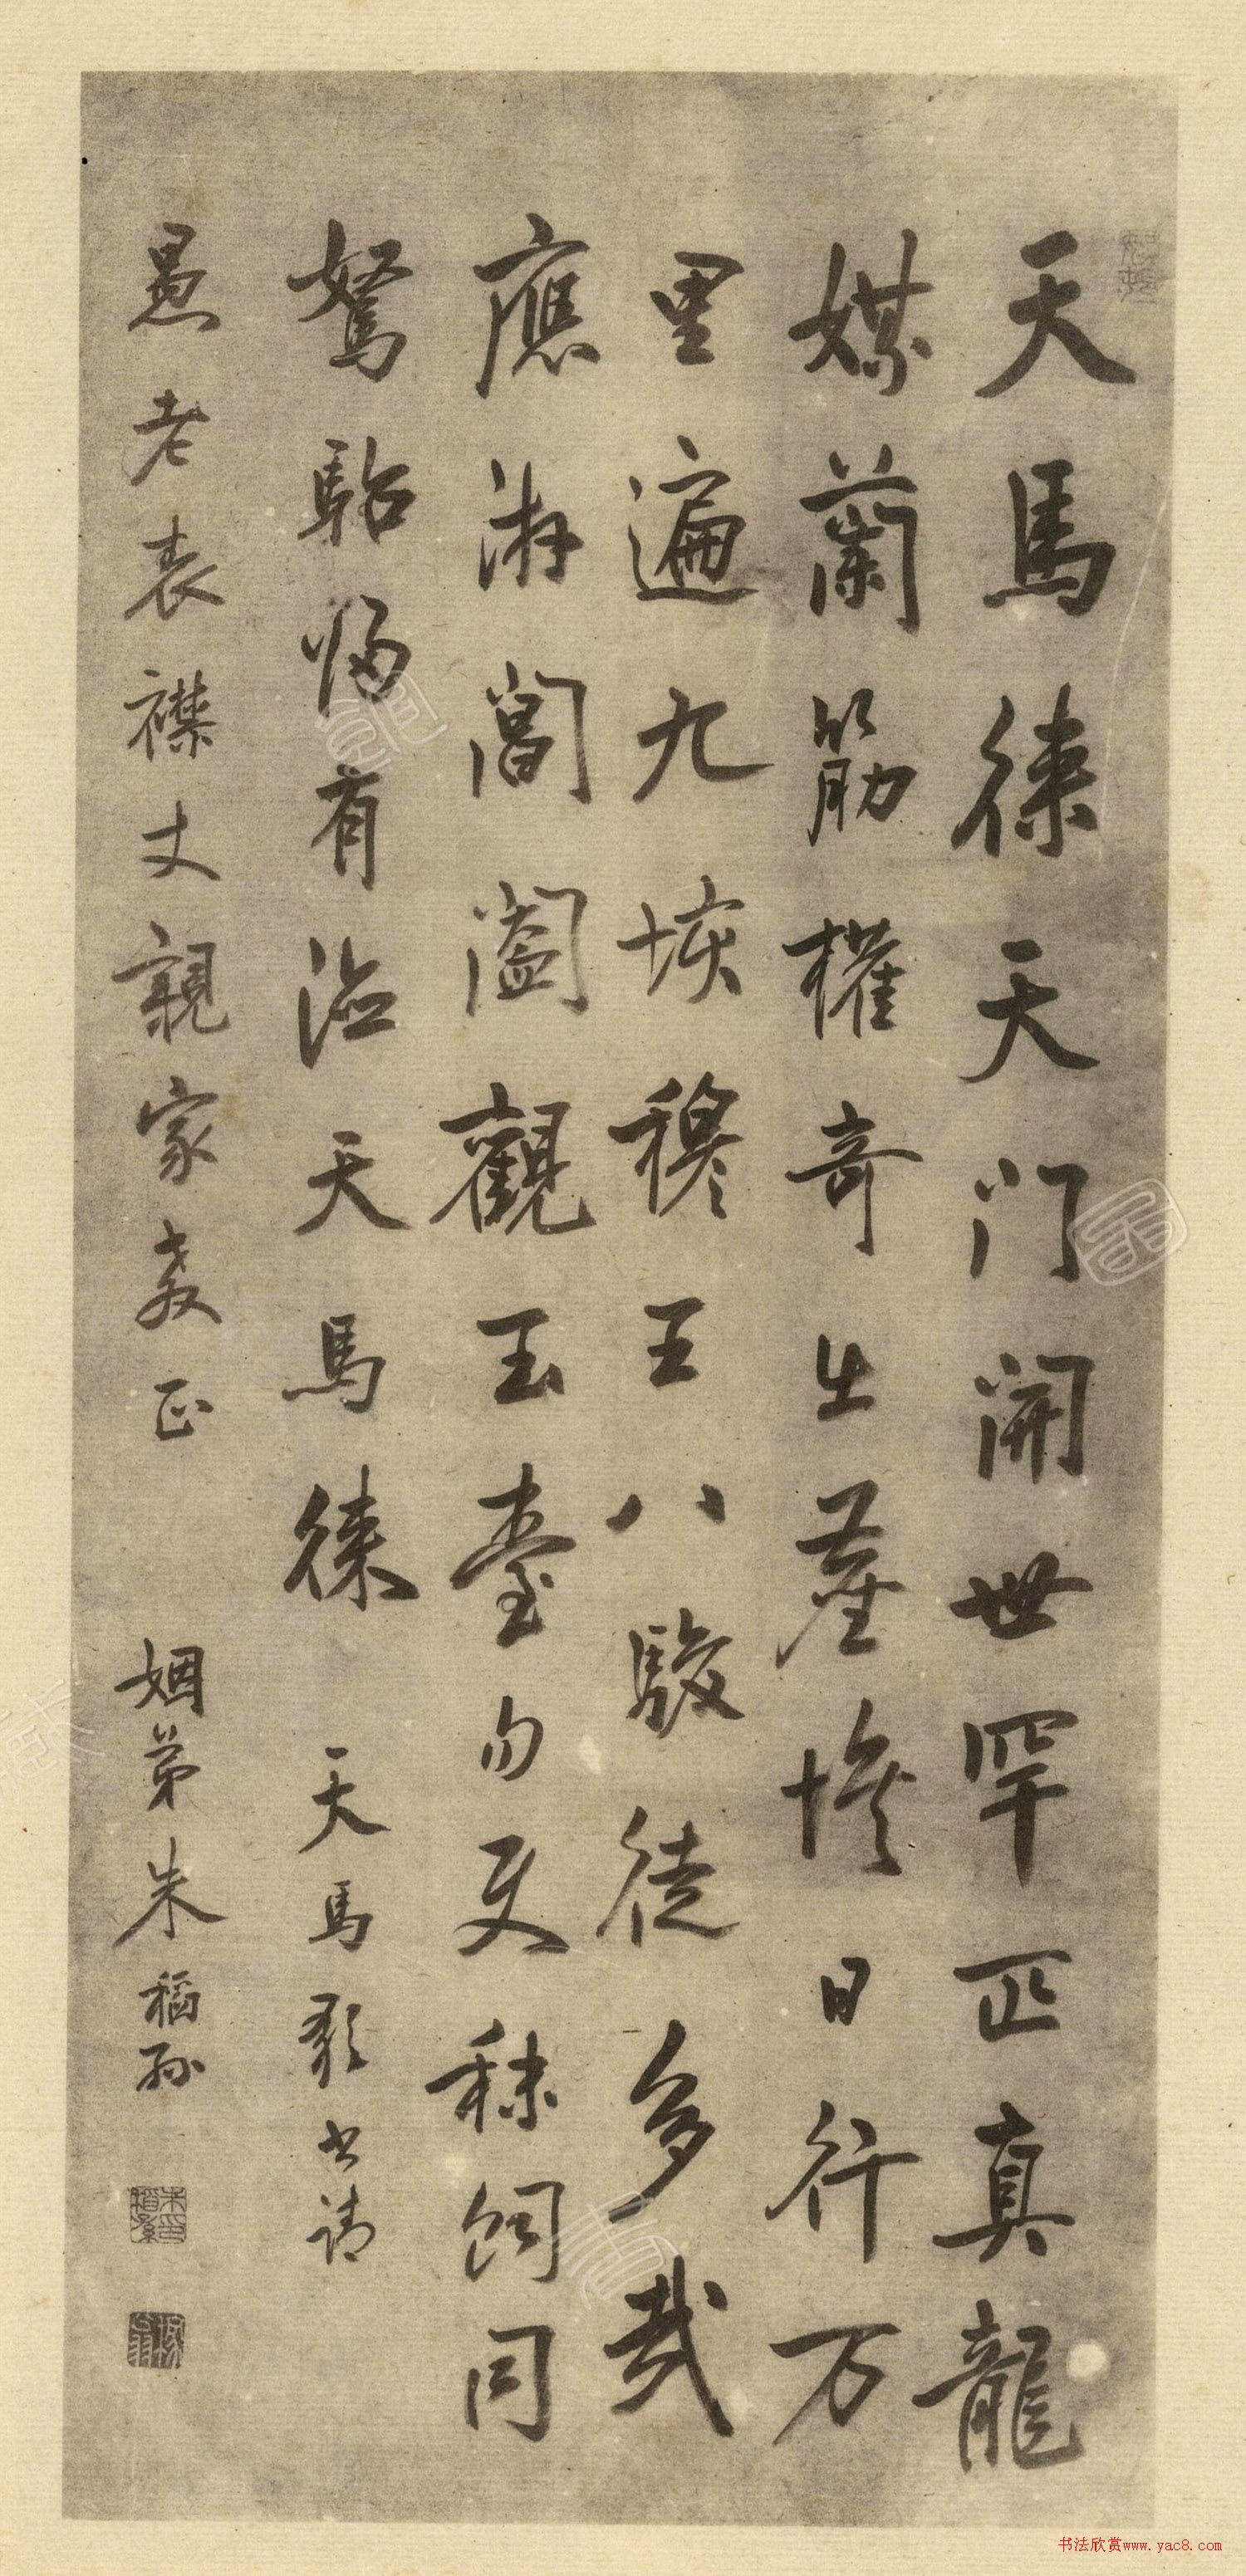 天馬徠天門開世罕匹真龍
媒蘭筋權奇生産
日行万
里遍九垓穆王八駿徒多哉
應游閶闔觀玉臺勿更秣飼同
駑駘
有
天馬徠 天馬歌書請
愚老表襟丈親家教正 姻弟朱稻孫
书法欣赏www.yac8.com